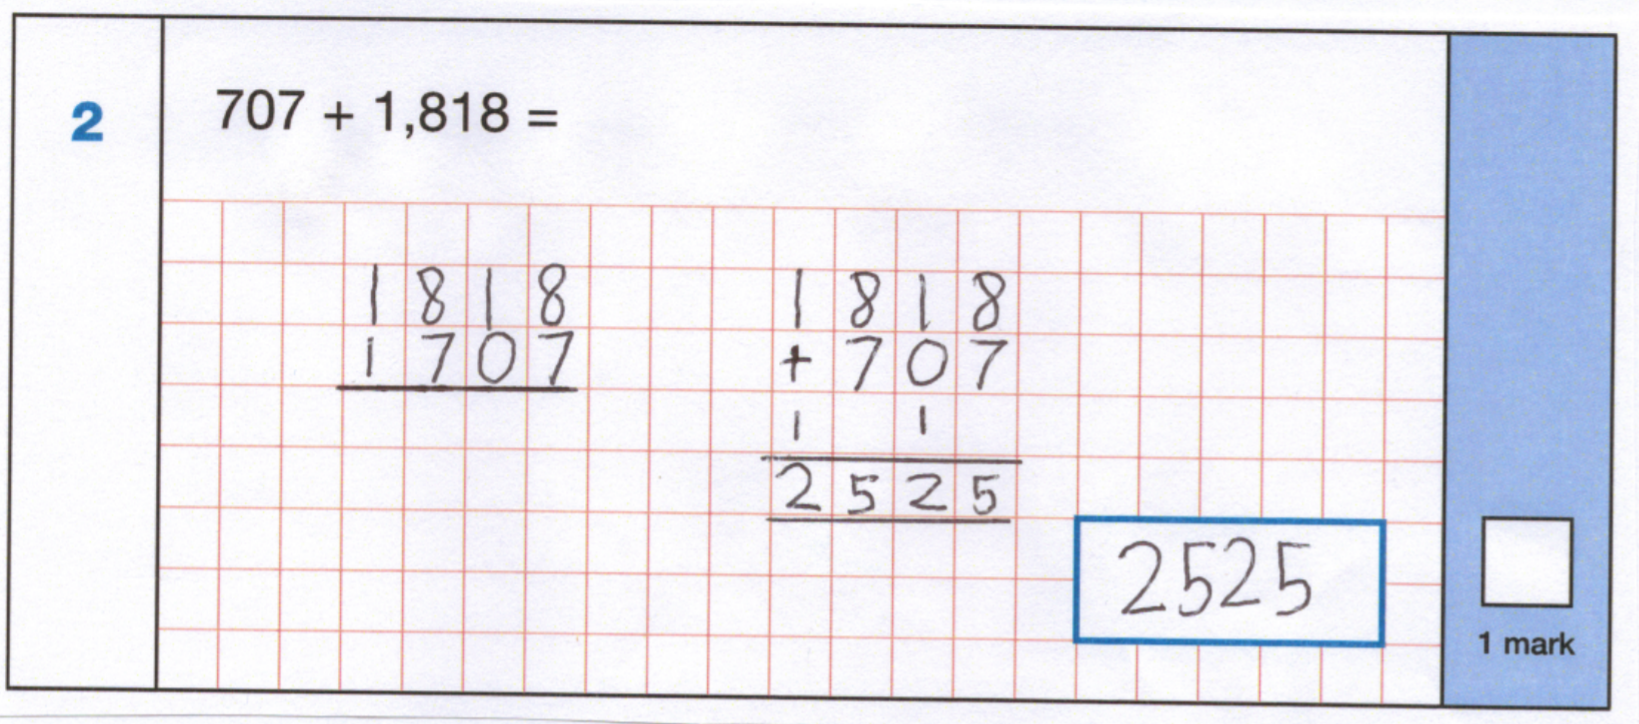 2
707 + 1,818 =
1818
1707
1818
+707
1 1
2525
2525
1 mark